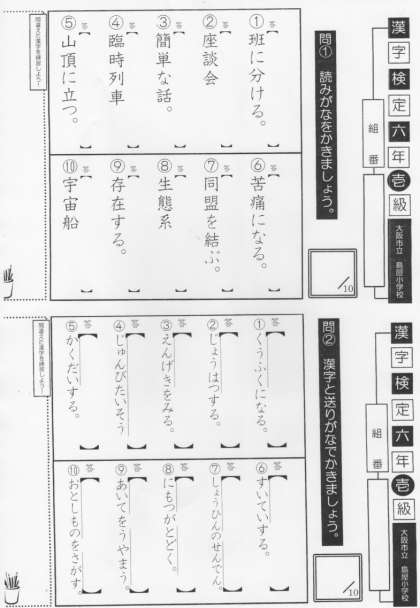 漢字検定六年壱級
大阪市立 島屋小学校
組 番
問① 読みがなをかきましょう。
/10
①班に分ける。
答
②座談会
答
③簡単な話。
答
④臨時列車
答
⑤山頂に立つ。
答
⑥苦痛になる。
答
⑦同盟を結ぶ。
答
⑧生態系
答
⑨存在する。
答
⑩宇宙船
答
間違えた漢字を練習しよう!
漢字検定六年壱級
大阪市立 島屋小学校
組 番
問② 漢字と送りがなでかきましょう。
/10
①くうふくになる。
答
②じょうはつする。
答
③えんげきをみる。
答
④じゅんびたいそう
答
⑤かくだいする。
答
⑥すいていする。
答
⑦しょうひんのせんでん。
答
⑧にもつがとどく。
答
⑨あいてをうやまう。
答
⑩おとしものをさがす。
答
間違えた漢字を練習しよう!